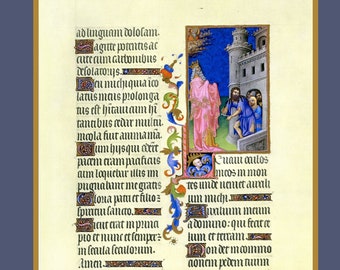 ad linguam dolosam.
Sagitte potentis ac
cute cum carbonibus
desolatoriis.
Heu michi quia inco
latus meus prolonga
tus est habitaui cum ha
bitantibus cedar multu
incola fuit anima mea
Cum hiis qui oder
runt pacem eram pacificus
cum loquebar illis im
pugnabant me gratis
Gloria patri et filio et
spiritui sancto.
Sicut erat in princi
pio et nunc et semper et
in secula seculorum.
Amen.
Leuaui oculos
meos in mo
ntes unde veniet auxili
um michi.
Auxilium meum
a domino: qui fecit ce
lum et terram
Non det in commo
cionem pedem tuum